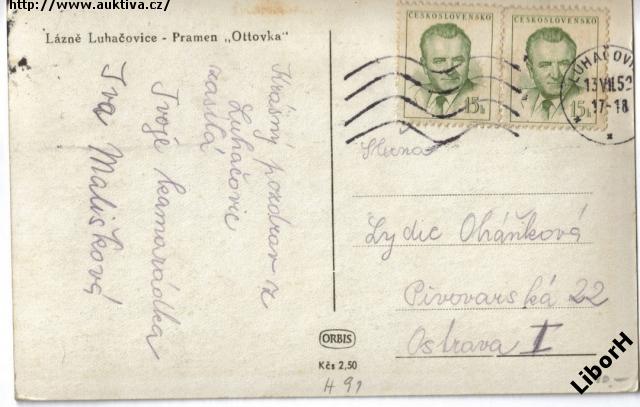 http://www.auktiva.cz/
Lázně Luhačovice - Pramen „Ottovka"
Krásný pozdrav z
Luhačovic
zasílá
Tvoje kamarádka
Iva Mališková
ČESKOSLOVENSKO
15h
ČESKOSLOVENSKO
15h
LUHAČOVI
13.VII.52
17-18
Slečna
Lydie Oháňková
Pivovarská 22
Ostrava I
ORBIS
Kčs 2,50
H 91
LiborH